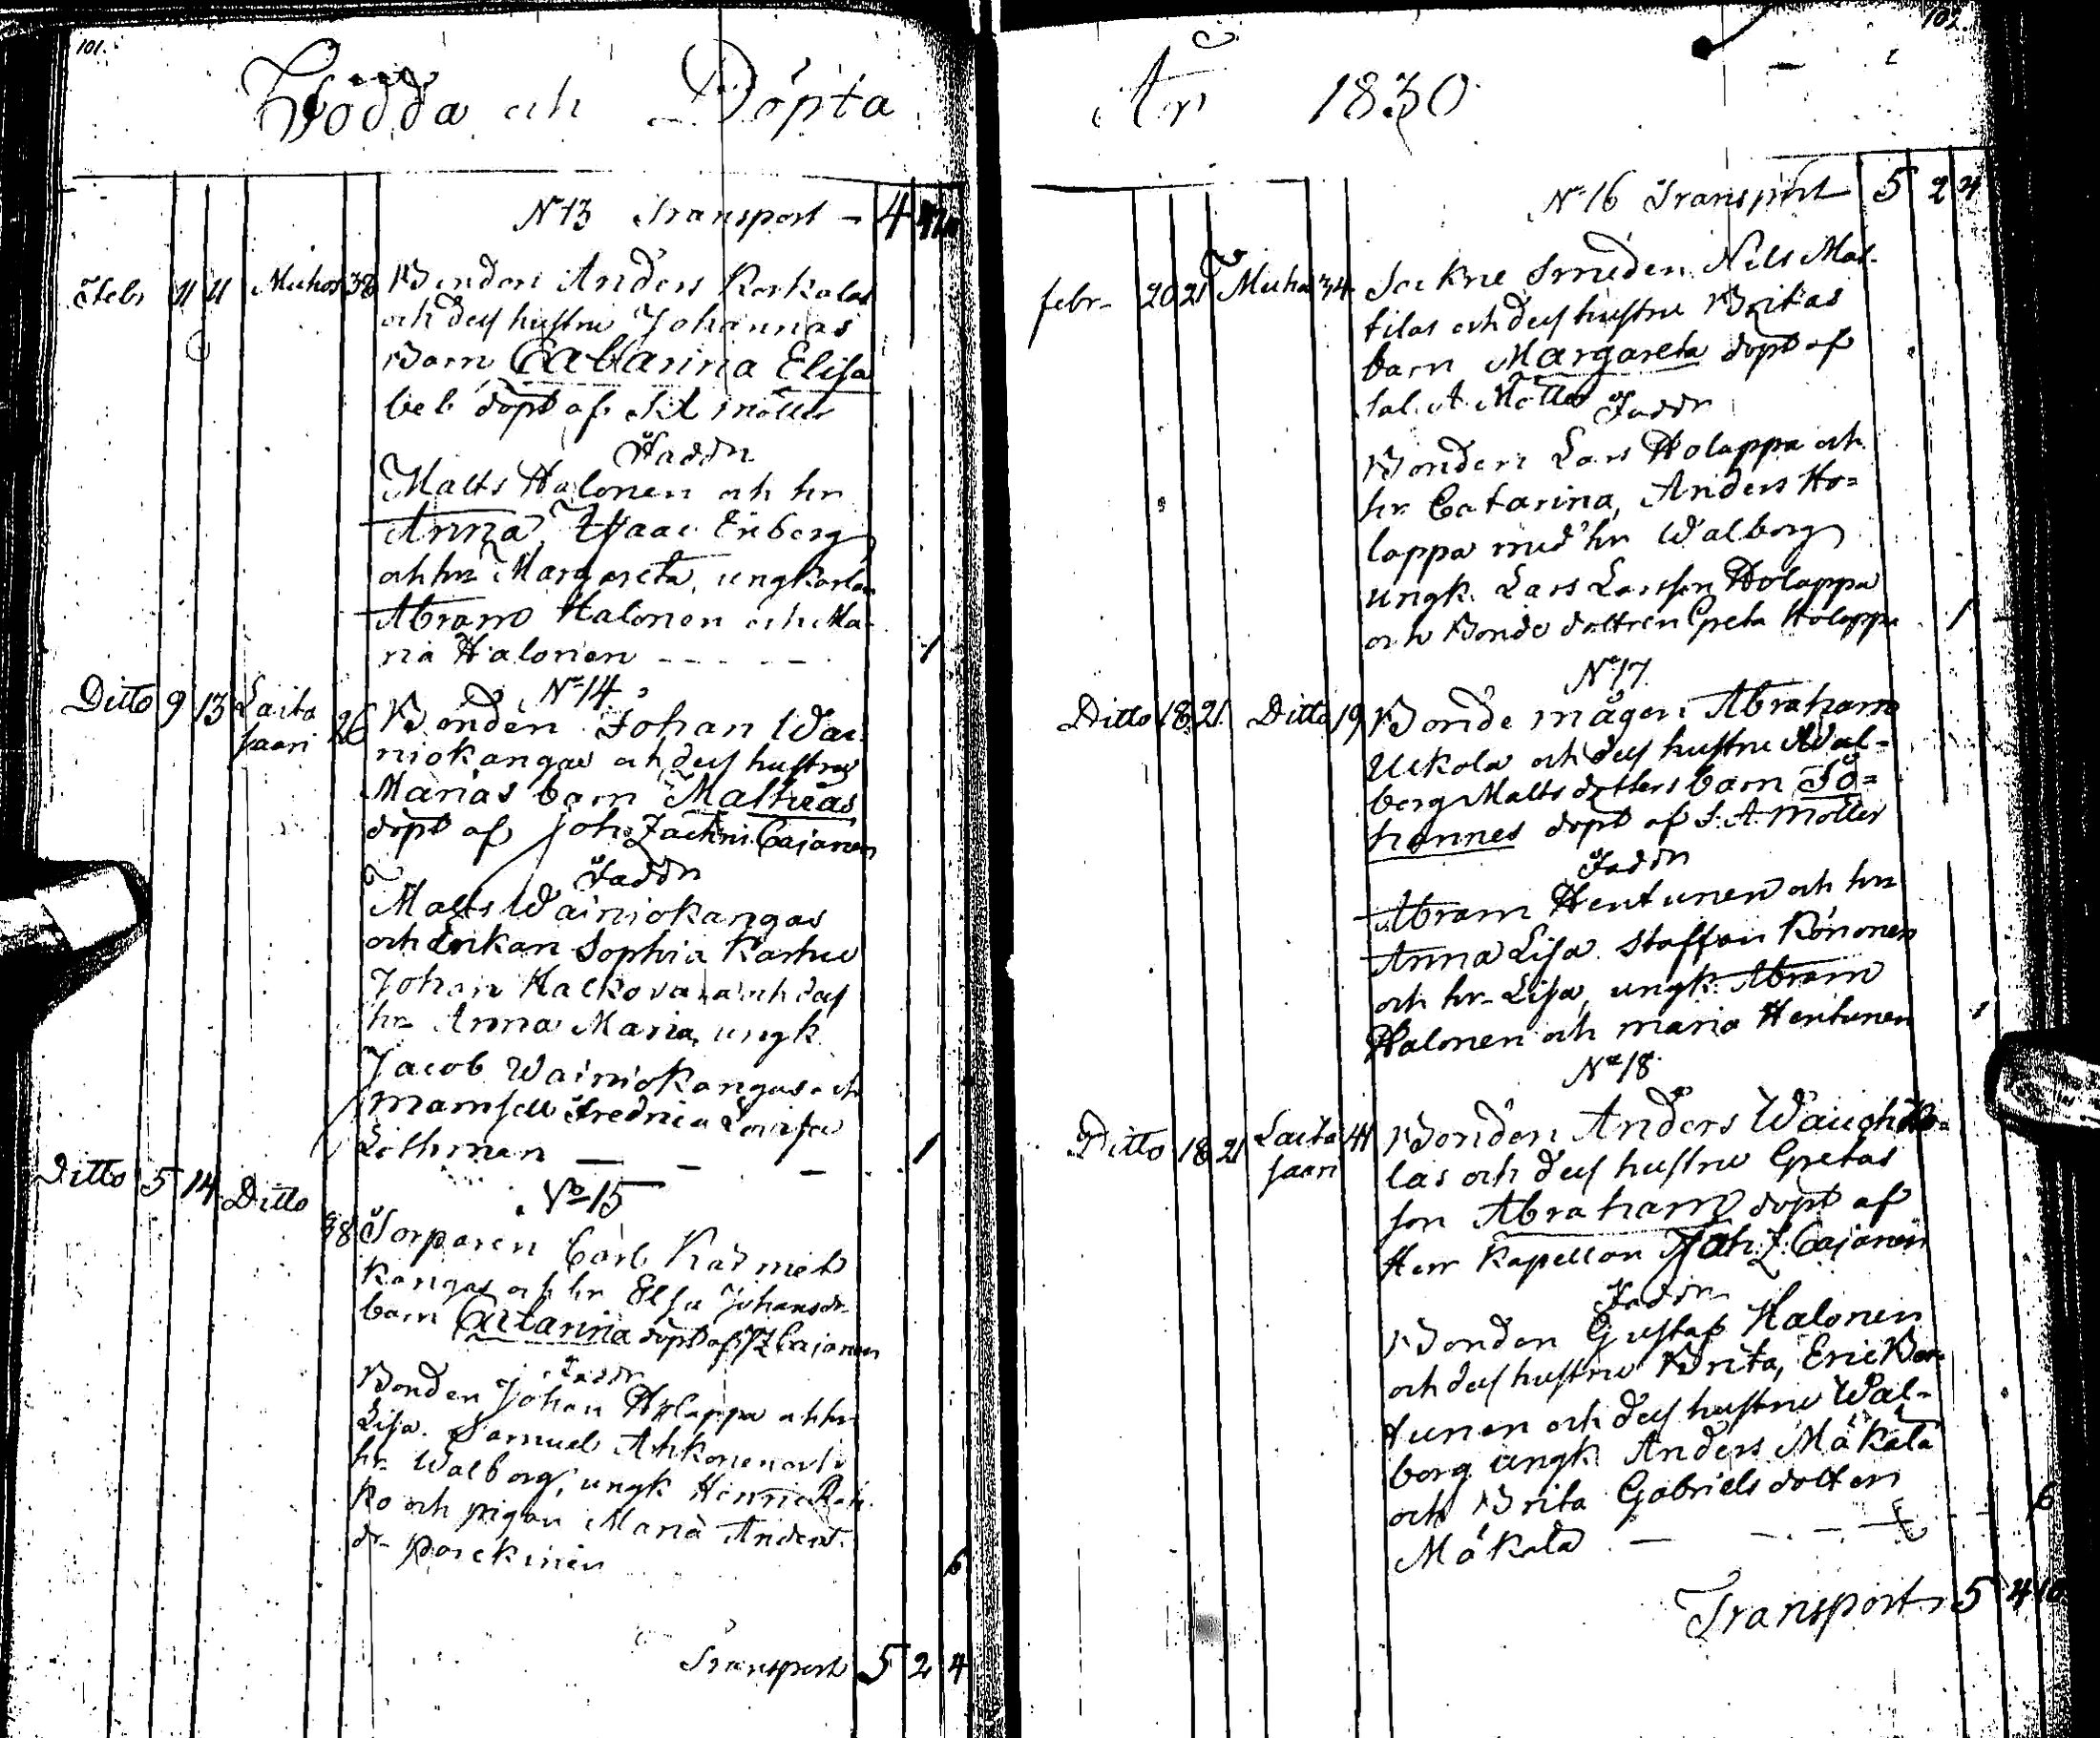 101.
Födda och Döpta
N 13 Transport - 4
Febr 11 11 Muhos 38 Bonden Anders Korkalas
och dess hustru Johannas
Barn Catarina Elisa
bet döpt af S A Möller
Faddr
Matts Halonen och hr
Anna, Isaac Enberg
och hr Margareta, ungkarlen
Abram Halonen och Ma-
ria Halonen - - - - - 1
N 14
Ditto 9 13 Laita 26 Bonden Johan Wai-
saari niokangas och dess hustrus
Marias barn Mathias
döpt af Joh Zachri Cajanen
Faddr
Matts Wainiokangas
och Enkan Sophia Karhu
Johan Halkovaara och dess
hr Anna Maria, ungk
Jacob Wainiokangas och
Mamsell Fredrica Lovisa
Lithman — - — 1
No 15
Ditto 5 14 Ditto 38 Torparen Carl
kangas och hr Elsa Johansdr
barn Catarina döpt af J Z Cajanen
Faddr
Bonden Johan Holappa och hr
Lisa. Samuel Ahkonen och
hr Walborg, ungk
ko och pigan Maria Anders
dr Parckinen 6
Transport 5 2 4
102.
År 1830
N 16 Transport 5 2 4
febr- 20 21 Muhos 34 Sockne Smeden Nils Mat-
tilas och dess hustru Britas
barn Margareta döpt af
Sal. A Möller
Faddr
Bonden Lars Holappa och
hr Catarina, Anders Ho=
lappa med hr Walborg
ungk. Lars Larsson Holappa
och Bonde dottren Greta Holappa 1
N 17
Ditto 18 21 Ditto 19 Bonde mågen Abraham
Uckola och dess hustru Wal-
borg Matts dotters barn Jo=
hannes döpt af S. A. Möller
Faddr
Abram Hentunen och hr
Anna Lisa. Staffan Kononen
och hr- Lisa, ungk. Abram
Halonen och Maria Hentunen 1
N 18
Ditto 18 21 Laita 41 Bonden Anders
saari las och dess hustru Gretas
son Abraham döpt af
Herr Kapellan Joh. Z. Cajanen
Faddr
Bonden Gustaf Halonen
och dess hustru Brita, Eric
tunen och dess hustru Wal-
borg ungk Anders Mäkälä
och Brita Gabriels dotter
Mäkälä — - - - 6
Transport 5 4 10